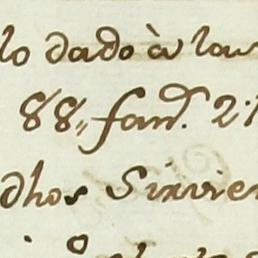 lo dado à las
88,, fan.^d 2.
dhos Sirvien